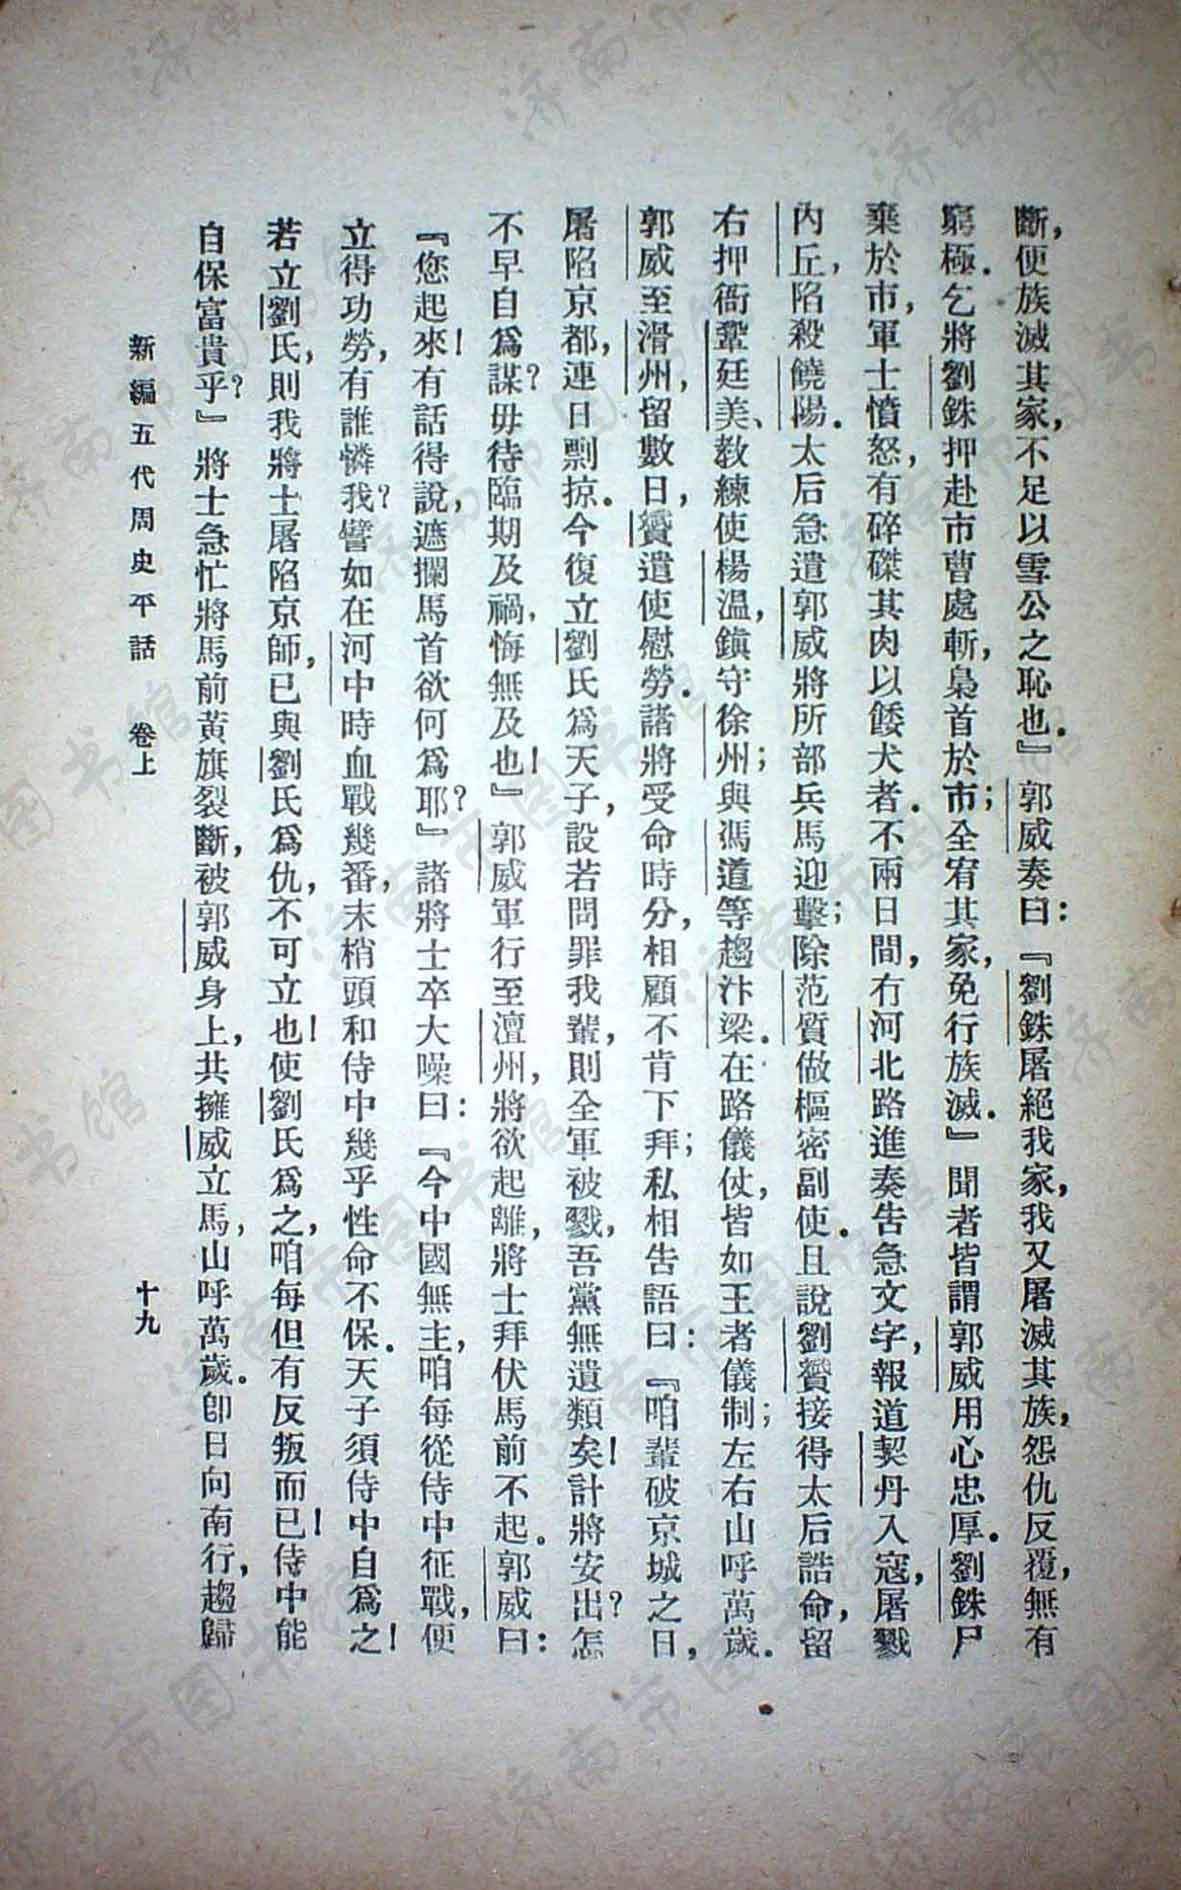 斷，便族滅其家，不足以雪公之恥也。』郭威奏曰：『劉銖屠絕我家，我又屠滅其族，怨仇反覆，無有
窮極。乞將劉銖押赴市曹處斬，梟首於市；全宥其家，免行族滅。』聞者皆謂郭威用心忠厚。劉銖尸
棄於市，軍士憤怒，有碎磔其肉以餧犬者。不兩日間，有河北路進奏告急文字，報道契丹入寇，屠戮
內丘，陷殺饒陽。太后急遣郭威將所部兵馬迎擊；除范質做樞密副使。且說劉贇接得太后誥命，留
右押衙鞏廷美、教練使楊溫，鎮守徐州；與馮道等趨汴梁。在路儀仗，皆如王者儀制；左右山呼萬歲。
郭威至滑州，留數日，贇遣使慰勞。諸將受命時分，相顧不肯下拜；私相告語曰：『咱輩破京城之日，
屠陷京都，連日剽掠。今復立劉氏爲天子，設若問罪我輩，則全軍被戮，吾黨無遺類矣！計將安出？怎
不早自爲謀？毋待臨期及禍，悔無及也！』郭威軍行至澶州，將欲起離，將士拜伏馬前不起。郭威曰：
『您起來！有話得說，遮攔馬首欲何爲耶？』諸將士卒大噪曰：『今中國無主，咱每從侍中征戰，便
立得功勞，有誰憐我？譬如在河中時血戰幾番，末梢頭和侍中幾乎性命不保。天子須侍中自爲之！
若立劉氏，則我將士屠陷京師，已與劉氏爲仇，不可立也！使劉氏爲之，咱每但有反叛而已！侍中能
自保富貴乎？』將士急忙將馬前黃旗裂斷，被郭威身上，共擁威立馬，山呼萬歲。卽日向南行，趨歸
新編五代周史平話　卷上　十九
济南市图书馆